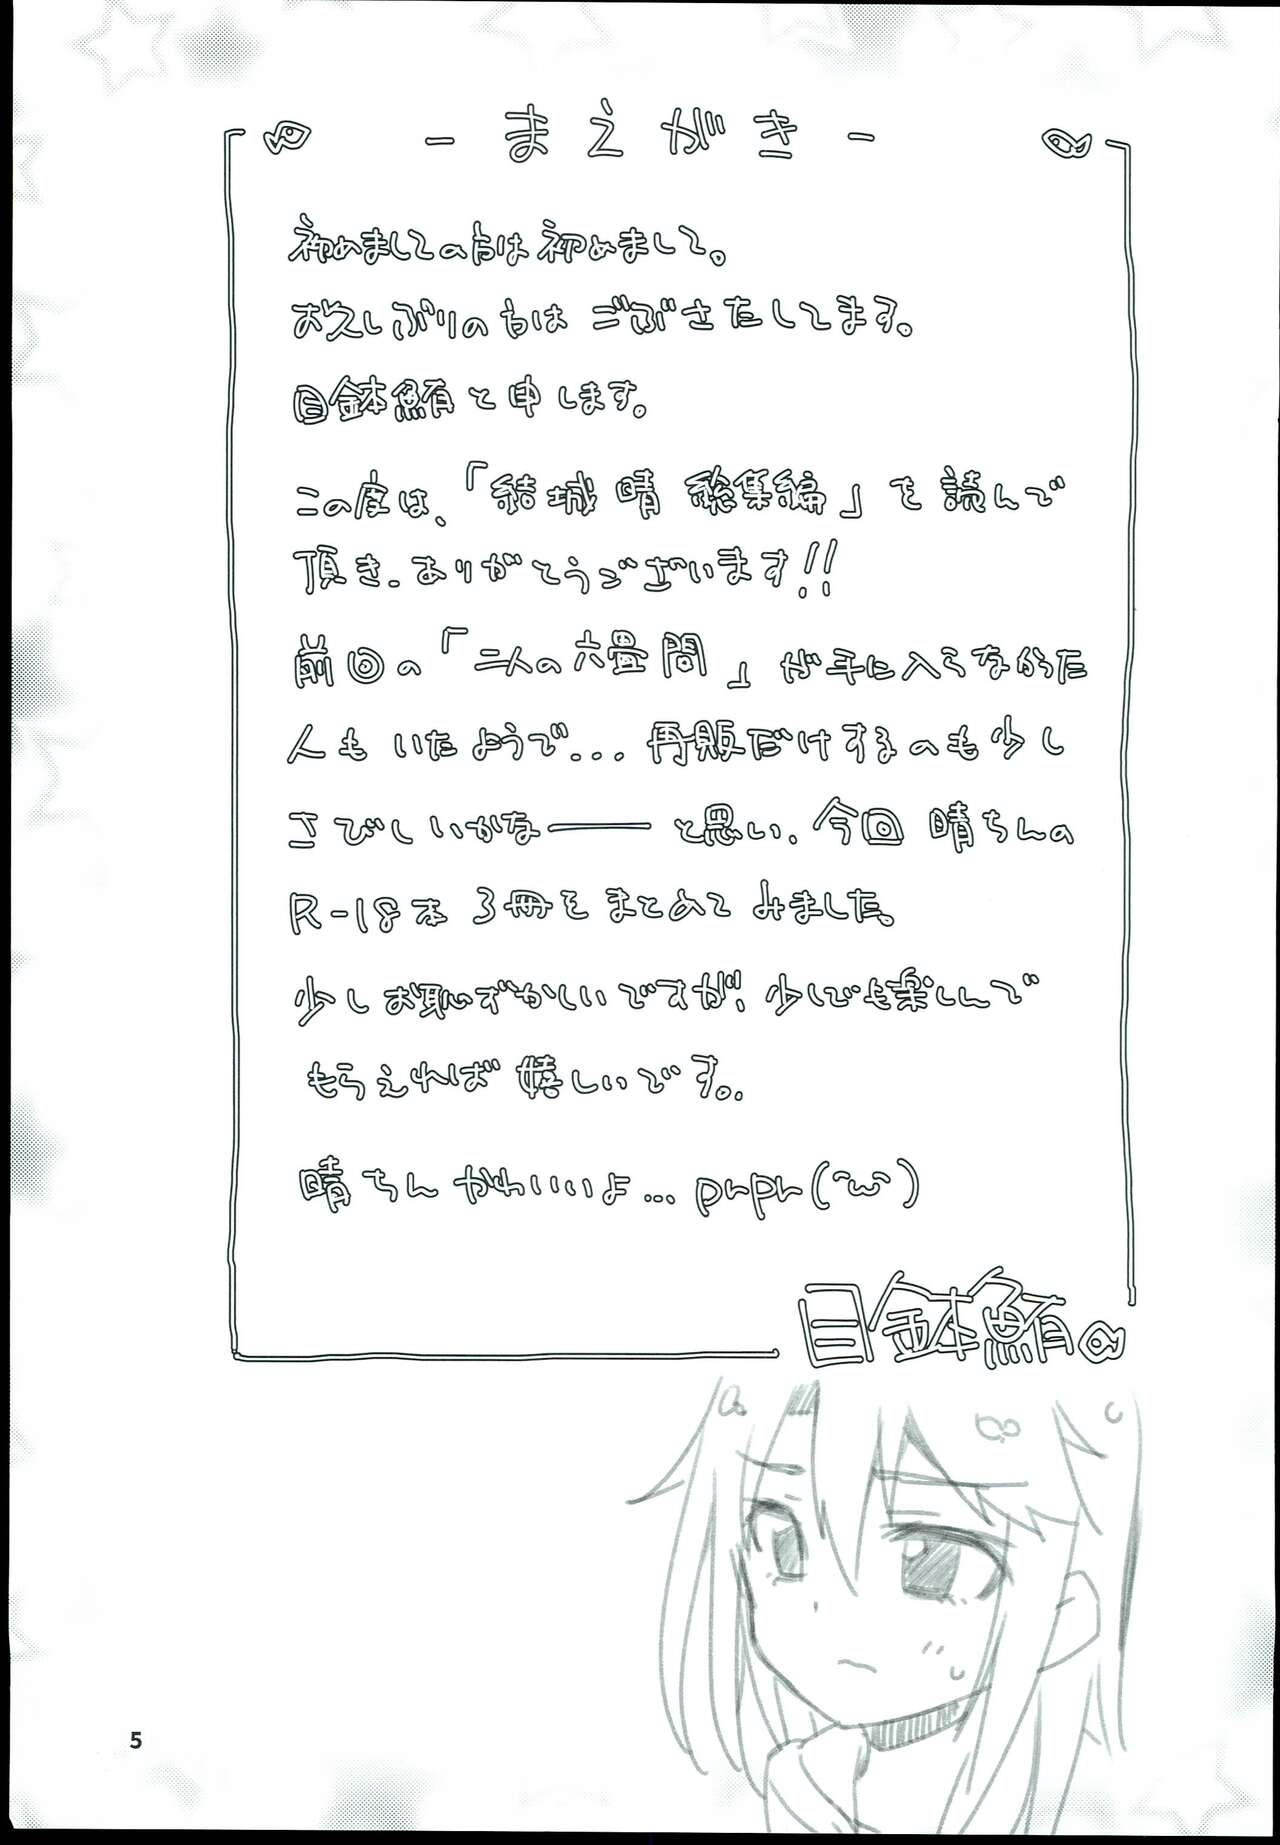 - まえがき -
初めましての方は初めまして。
お久しぶりの方は ごぶさたしてます。
目鉢鮪と申します。
この度は、「結城 晴 総集編」を読んで
頂き、ありがとうございます!!
前回の「二人の六畳間」が手に入らなかった
人も いたようで... 再販だけするのも少し
さびしいかなーーと思い、今回 晴ちんの
R-18本 3冊をまとめて みました。
少しお恥ずかしいですが、少しでも楽しんで
もらえれば 嬉しいです。
晴ちん かわいいよ... prpr(^ω^)
目鉢鮪
5